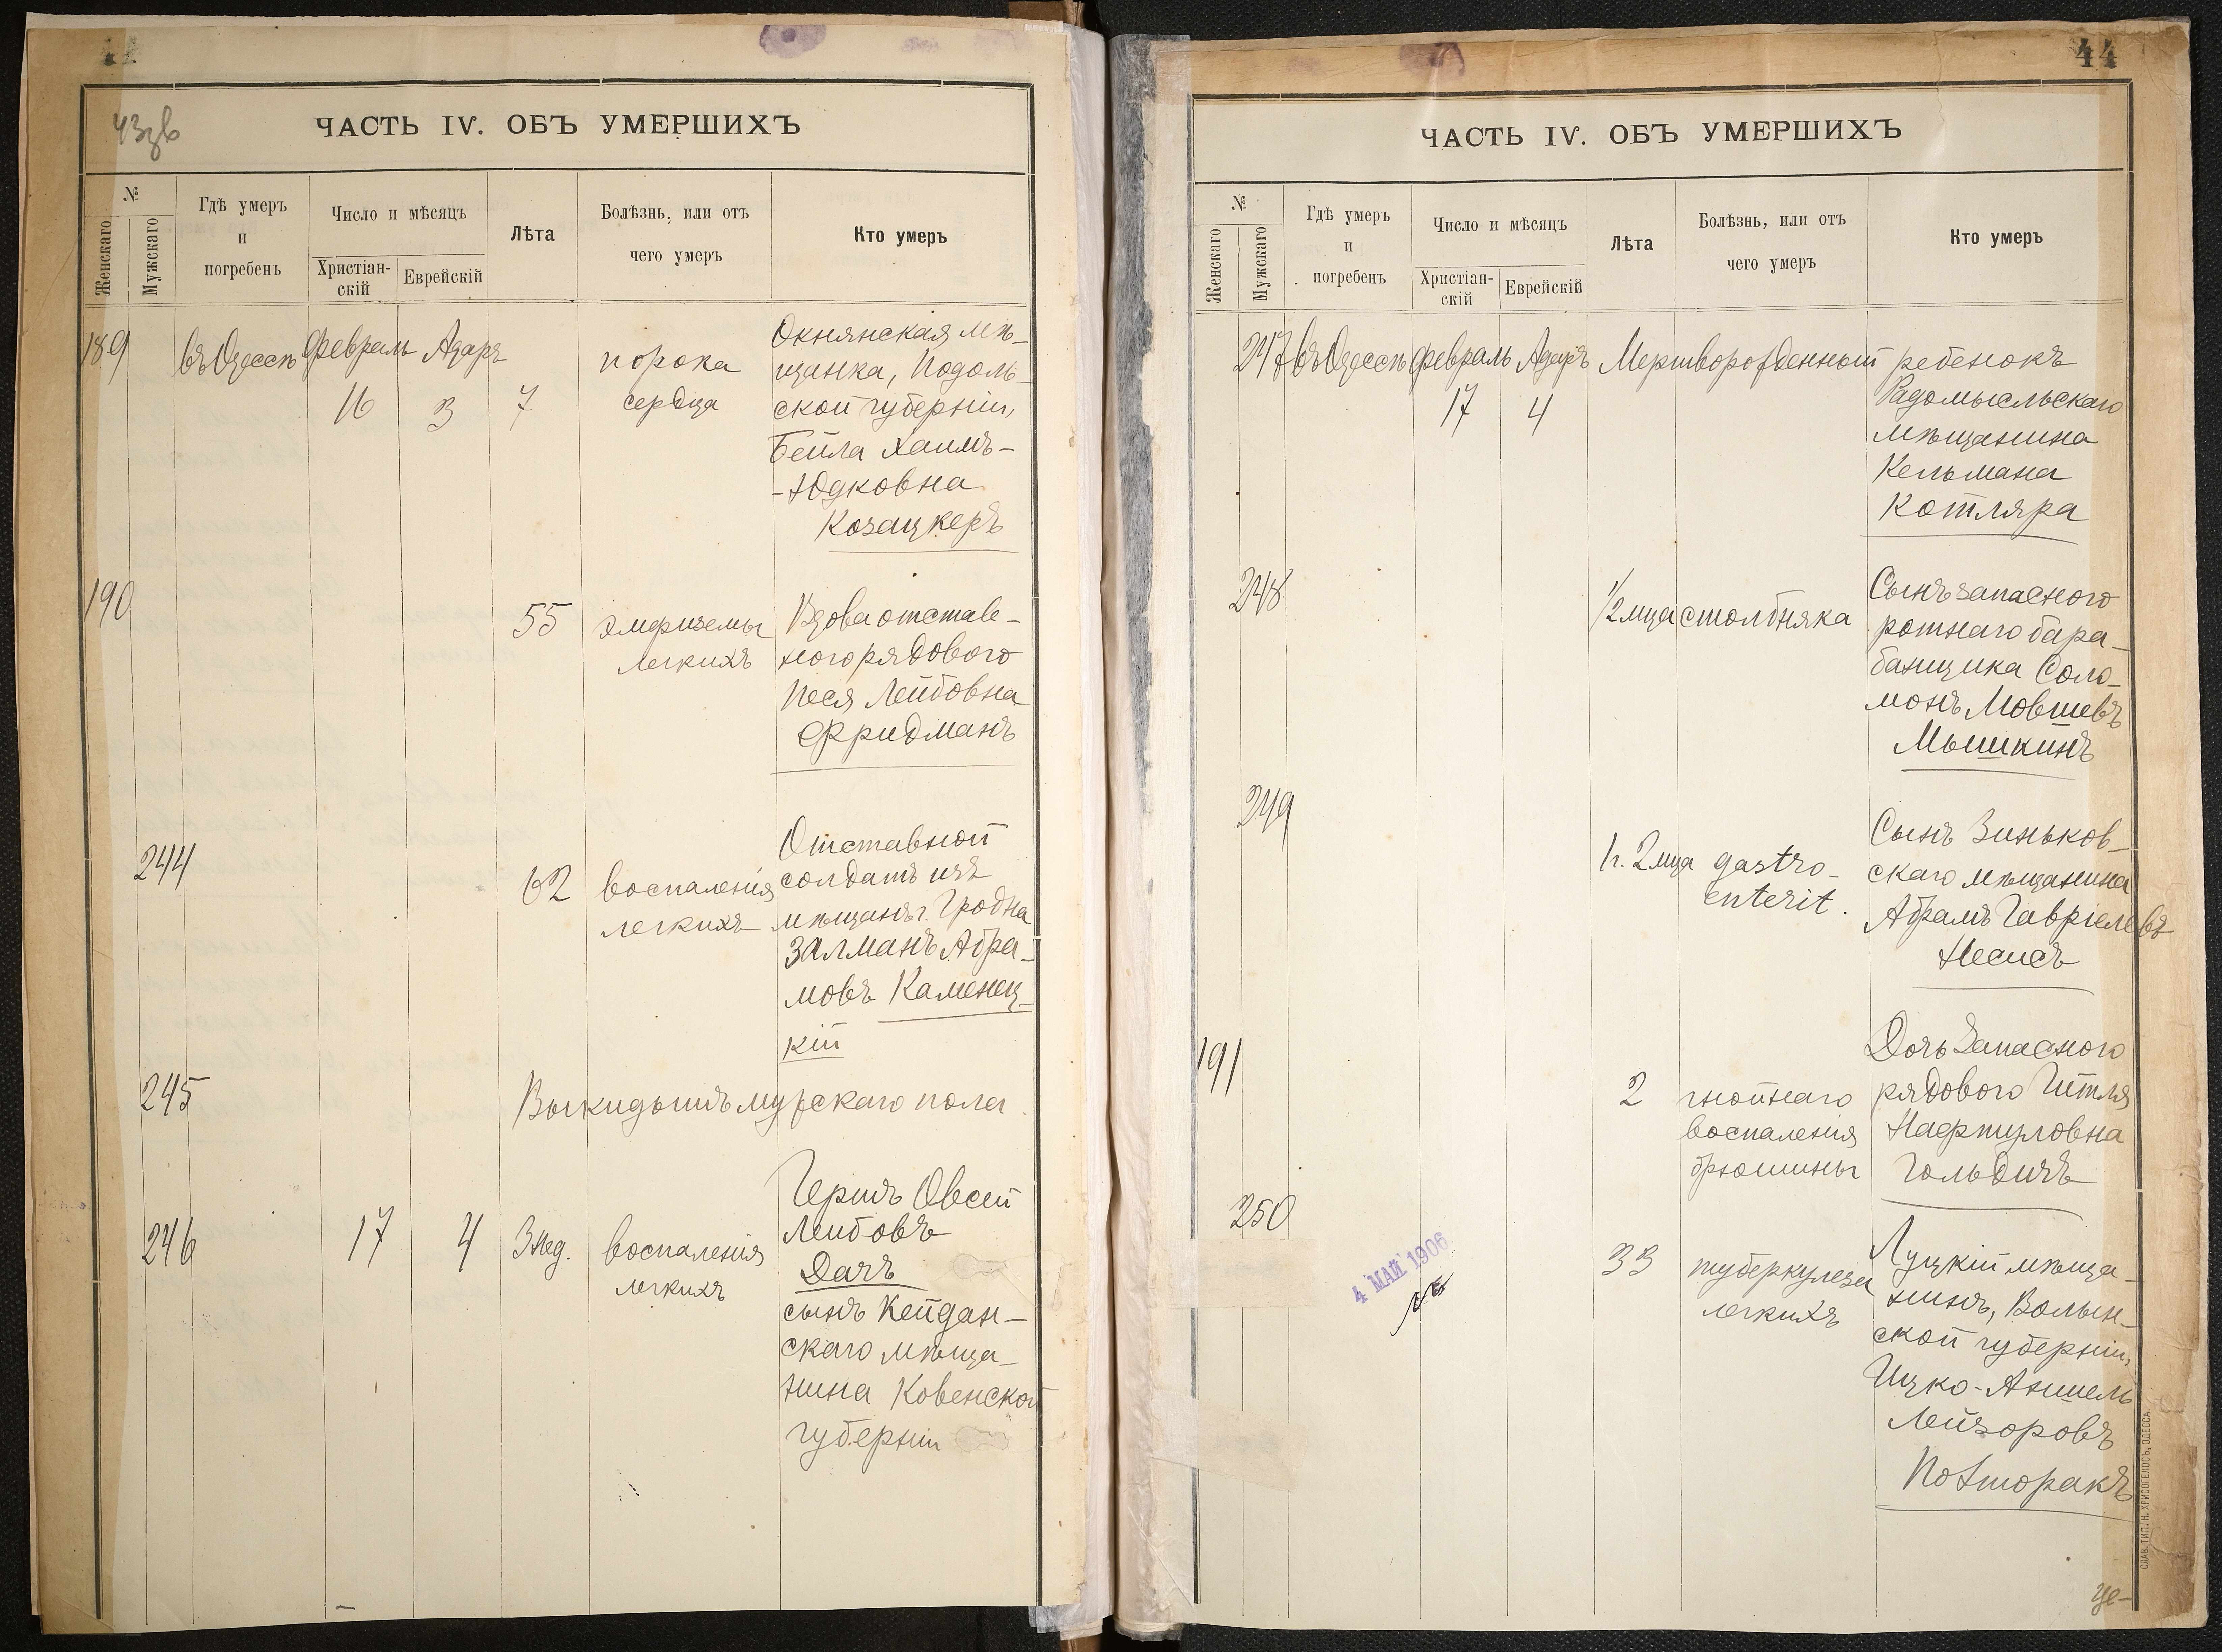 43об
ЧАСТЬ IV. ОБЪ УМЕРШИХЪ
№
Женскаго
Мужскаго
Гдѣ умеръ
и
погребенъ
Число и мѣсяцъ
Христіан-
скій
Еврейскій
Лѣта
Болѣзнь, или отъ
чего умеръ
Кто умеръ
189
въ Одессѣ
Февраль
Адаръ
16
3
7
порока
сердца
Окнянская мѣ-
щанка, Подоль-
ской губерніи,
Бейла Хаимъ-
-Юдковна
Козацкеръ
190
55
эмфиземы
легкихъ
Вдова отстав-
ного рядового
Песя Лейбовна
Фридманъ
244
62
воспаленія
легкихъ
Отставной
солдатъ изъ
мѣщанъ г. Гродна
Залманъ Абра-
мовъ Каменец-
кій
245
Выкидышъ мужскаго пола
246
17
4
3 нед.
воспаленія
легкихъ
Гершъ Овсей
Лейбовъ
Дачъ
сынъ Кейдан-
скаго мѣща-
нина Ковенской
губерніи
44
ЧАСТЬ IV. ОБЪ УМЕРШИХЪ
№
Женскаго
Мужскаго
Гдѣ умеръ
и
погребенъ
Число и мѣсяцъ
Христіан-
скій
Еврейскій
Лѣта
Болѣзнь, или отъ
чего умеръ
Кто умеръ
247
въ Одессѣ
Февраль
Адаръ
17
4
Мертворожденный ребенокъ
Радомысльскаго
мѣщанина
Кельмана
Котляра
248
1/2 мца
столбняка
Сынъ запасного
ротнаго бара-
банщика Соло-
монъ Мовшевъ
Мышкинъ
249
1 г. 2 мца
gastro-
enterit.
Сынъ Зиньков-
скаго мѣщанина
Абрамъ Гавріелевъ
Несисъ
191
2
гнойнаго
воспаленія
брюшины
Дочь Запасного
рядового Гитля
Нафтуловна
Гольдичъ
250
4 МАЙ 1906
33
туберкулеза
легкихъ
Луцкій мѣща-
нинъ, Волын-
ской губерніи,
Ицко-Аншель
Лейзоровъ
Полторакъ
СЛАВ. ТИП. Н. ХРИСОГЕЛОСЪ, ОДЕССА.